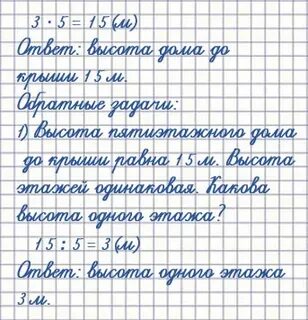 3 · 5 = 15 (м)
Ответ: высота дома до
крыши 15 м.
Обратные задачи:
1) Высота пятиэтажного дома
до крыши равна 15 м. Высота
этажей одинаковая. Какова
высота одного этажа?
15 : 5 = 3 (м)
Ответ: высота одного этажа
3 м.